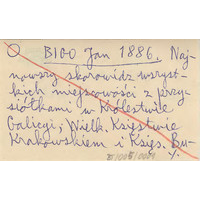 BIGO Jan 1886. Naj-
nowszy skorowidz wszyst-
kich miejscowości z przy-
siółkami w Królestwie
Galicyi, Wielk. Księstwie
Krakowskiem i Księs. Bu-